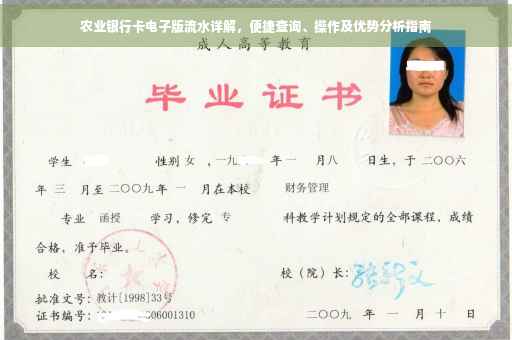 农业银行卡电子版流水详解，便捷查询、操作及优势分析指南
成人高等教育
毕业证书
学生 性别 女 ，一九 年 一 月 八 日生，于 二〇〇六
年 三 月至 二〇〇九 年 一 月在本校 财务管理
专业 函授 学习，修完 专 科教学计划规定的全部课程，成绩
合格，准予毕业。
校 名： 校（院）长：
批准文号：教计[1998]33号
证书编号： 06001310 二〇〇九 年 一 月 十 日